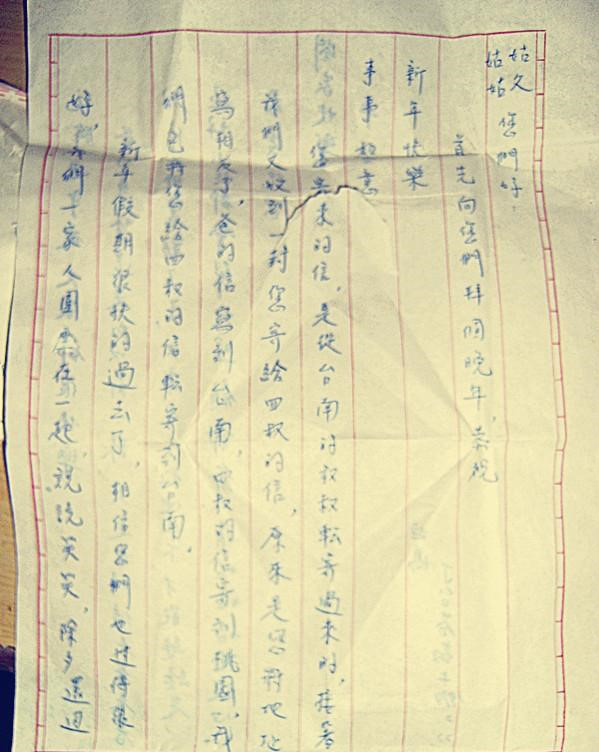 姑丈 姑姑 您們好：
首先向您們拜個晚年，恭祝
新年快樂
事事如意
您寄來的信，是從台南的叔叔転寄過來的，接著
我們又收到一封您寄給四叔的信，原來是您將地址
寫相反了，爸的信寫到台南，四叔的信寄到桃園，我
們已將您給四叔的信転寄到台南，
新年假期很快的過去了，相信您們也過得很
好，我們一家人團聚在一起，說說笑笑，除夕還迴